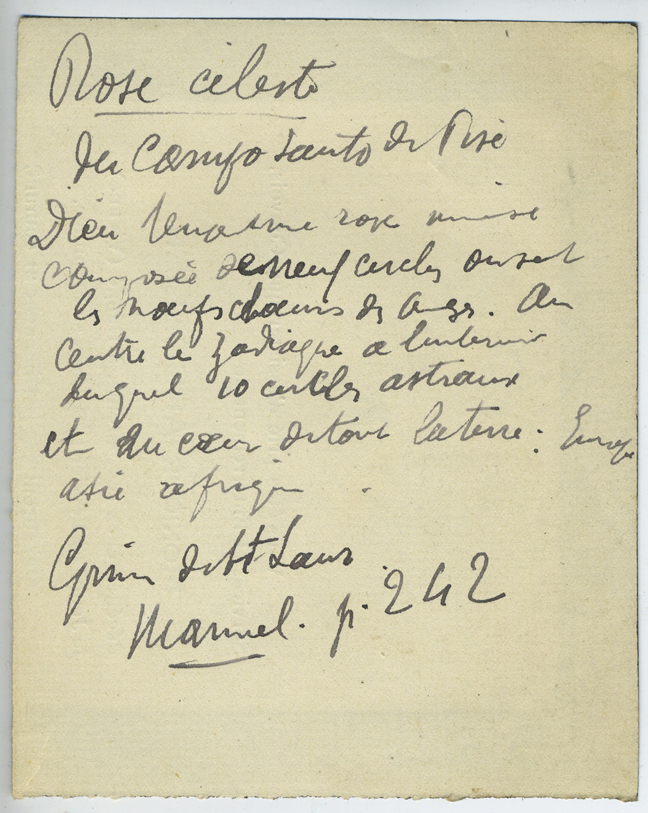 Rose céleste
du Campo Santo de Pise
Dieu tenant une rose
composée de neuf cercles ou sont
les noeufs choeurs des anges. Au
centre le zodiaque a l'interieur
duquel 10 cercles astraux
et au coeur de tout la terre : Europe
asie afrique .
de St Laur
Manuel. p. 242